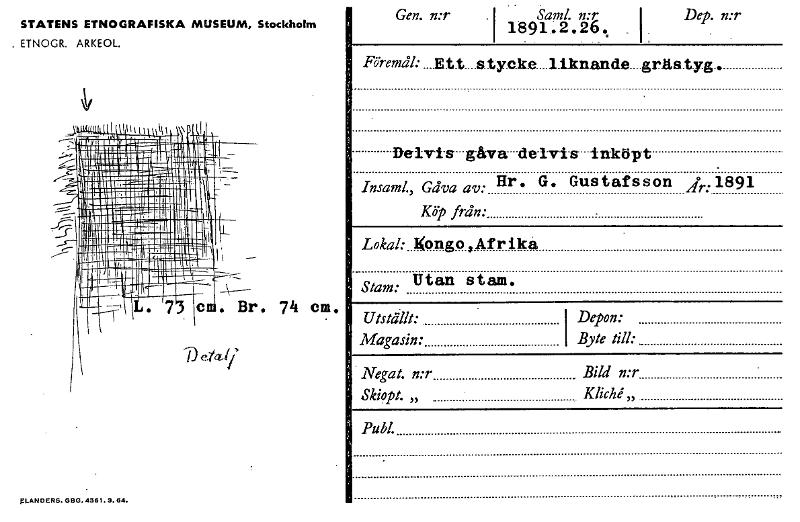 STATENS ETNOGRAFISKA MUSEUM, Stockholm
ETNOGR. ARKEOL.
L. 73 cm. Br. 74 cm.
Detalj
ELANDERS. GBG. 4361. 3. 64.
Gen. n:r Saml. n:r Dep. n:r
1891.2.26.
Föremål: Ett stycke liknande grästyg.
Delvis gåva delvis inköpt
Insaml., Gåva av: Hr. G. Gustafsson År: 1891
Köp från:
Lokal: Kongo, Afrika
Stam: Utan stam.
Utställt: Depon:
Magasin: Byte till:
Negat. n:r Bild n:r
Skiopt. „ Kliché „
Publ.